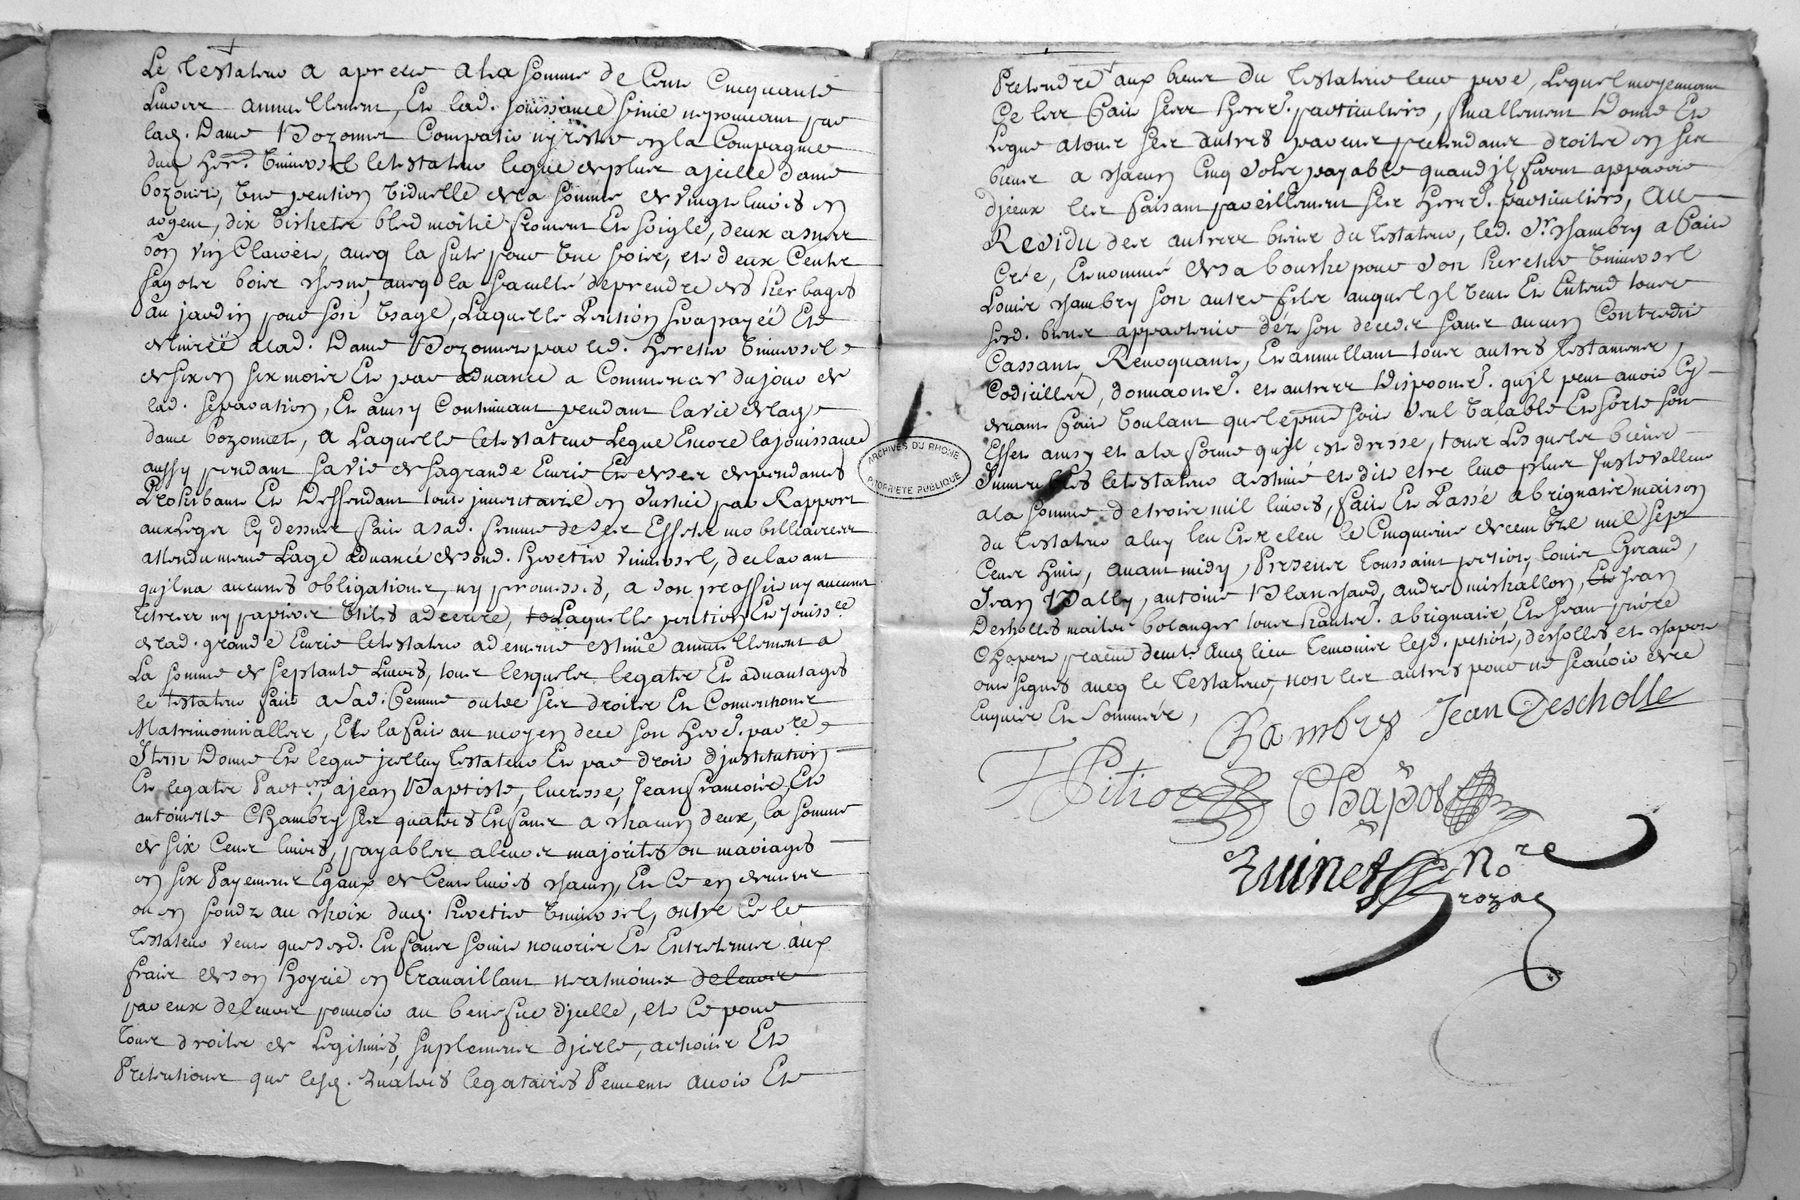 Le Testateur a apretie a la somme de Cent Cinquante
Livres annuellement, Et lad. jouissance finie ne pouvant par
lad. Dame Bozonnet Compatir ny rester en la Compagnie
dud. Her. Universel le testateur legue de plus a jcelle dame
bozonnet, Une pention Viduelle de la somme de vingt livres en
argent, dix bichets bled moitié froment Et soigle, deux asnees
bon vin Clairet, avecq la fute pour Une fois, et deux Cents
fagots bois chesne, avecq la faculté de prendre des herbages
au jardin pour son Usage, Laquelle Pention sera payée Et
delivrée a lad. Dame Bozonnet par led. Heretier Universel
de six en six mois Et par advance a Commencer du jour de
lad. separation, Et ainsy Continuant pendant la vie de lad.
dame bozonnet, a Laquelle le testateur Legue Encore la jouissance
aussy pendant sa vie de sa grande Ecurie Et de ses dependances
Prohibant Et Deffendant tout jnventaire en Justice par Rapport
aux Legs Cy dessus fait a sad. femme de ses Effets mobilliaires
attendu meme L'age advancé de sond. heretier Universel, declarant
qu'jl na aucunes obligations, ny promesses, a son proffit ny aucuns
tittres ny papiers Utiles a decrire, Laquelle pention Et Jouiss.ce
de lad. grande Ecurie le testateur a de meme estimé annuellement a
La somme de septante Livres, tous lesquels legats Et advantages
le testateur fait a Sad. femme outre ses droits Et Conventions
Matrimonialles, Et la fait au moyen de ce son Here. par.re
Item Donne Et legue jcelluy testateur Et par droit d'jnstitution
Et legats Part.rs a jean Baptiste, lucresse, Jean francois, Et
antoinette Chambry ses quatres Enfans a chacun deux, la somme
de six Cens livres, payables a leurs majorités ou mariages
en six Payemens Egaux de Cent livres chacun, Et Ce en deniers
ou en fondz au choix dud. heretier Universel, outre Ce le
Testateur veut que sesd. Enfans soint nourris Et Entretenus aux
frais de son hoyrie en travaillant neanmoins de leurs
par eux de leurs pouvoir au benefice d'jcelle, et Ce pour
tous droits de Legitimes, suplemens d'jcelle, actions Et
Pretentions que lesd. quatres legataires Peuvent avoir Et
Pretendre aux biens du Testateur leur pere, Lequel moyennant
Ce les fait ses Herrs. particuliers, finallement Donne Et
Legue a tous ses autres parens pretendans droits en ses
biens a chacun Cinq sols payable quand jls feront apparoir
d'jceux les faisant pareillement ses Herrs. particuliers, Au
Residu des autres biens du testateur, led. Sr. chambry a fait
Créé, Et nommé de sa bouche pour son heretier Universel
Louis chambry son autre fils auquel jl Veut Et Entend tous
sesd. biens appartenir déz son decedz sans aucun Contredit
Cassant, Revoquant, Et annullant tous autres Testamens,
Codicilles, donnaons. et autres Disposons. qu'jl peut avoir Cy
devant fait Voulant que le pnt. soit seul Valable Et sorte son
Effet ainsy et a la forme qu'jl est dressé, tous Lesquels biens
Immeubles le testateur a estimé et dit etre leur plus juste valleur
a la somme de trois mil livres, fait Et Passé a brignais maison
du Testateur a luy leu Et releu le Cinquieme decembre mil sept
Cens huit, avant midy, Presens Toussaint petiot, louis Giraud,
Jean Bally, antoine Blanchard, andré michallon, Jean
Descholles maitre bolanger tous habitts. a brignais, Et Jean pierre
Chapot praen. demt. Aud. lieu temoins lesd. petiot, descholles et chapot
ont signés avecq le Testateur, non les autres pour ne scavoir de ce
Enquis Et Sommés,
Chambry Jean Descholle
Petiot Chapot
Quinet No.re
rozal
ARCHIVES DU RHONE
PROPRIETE PUBLIQUE